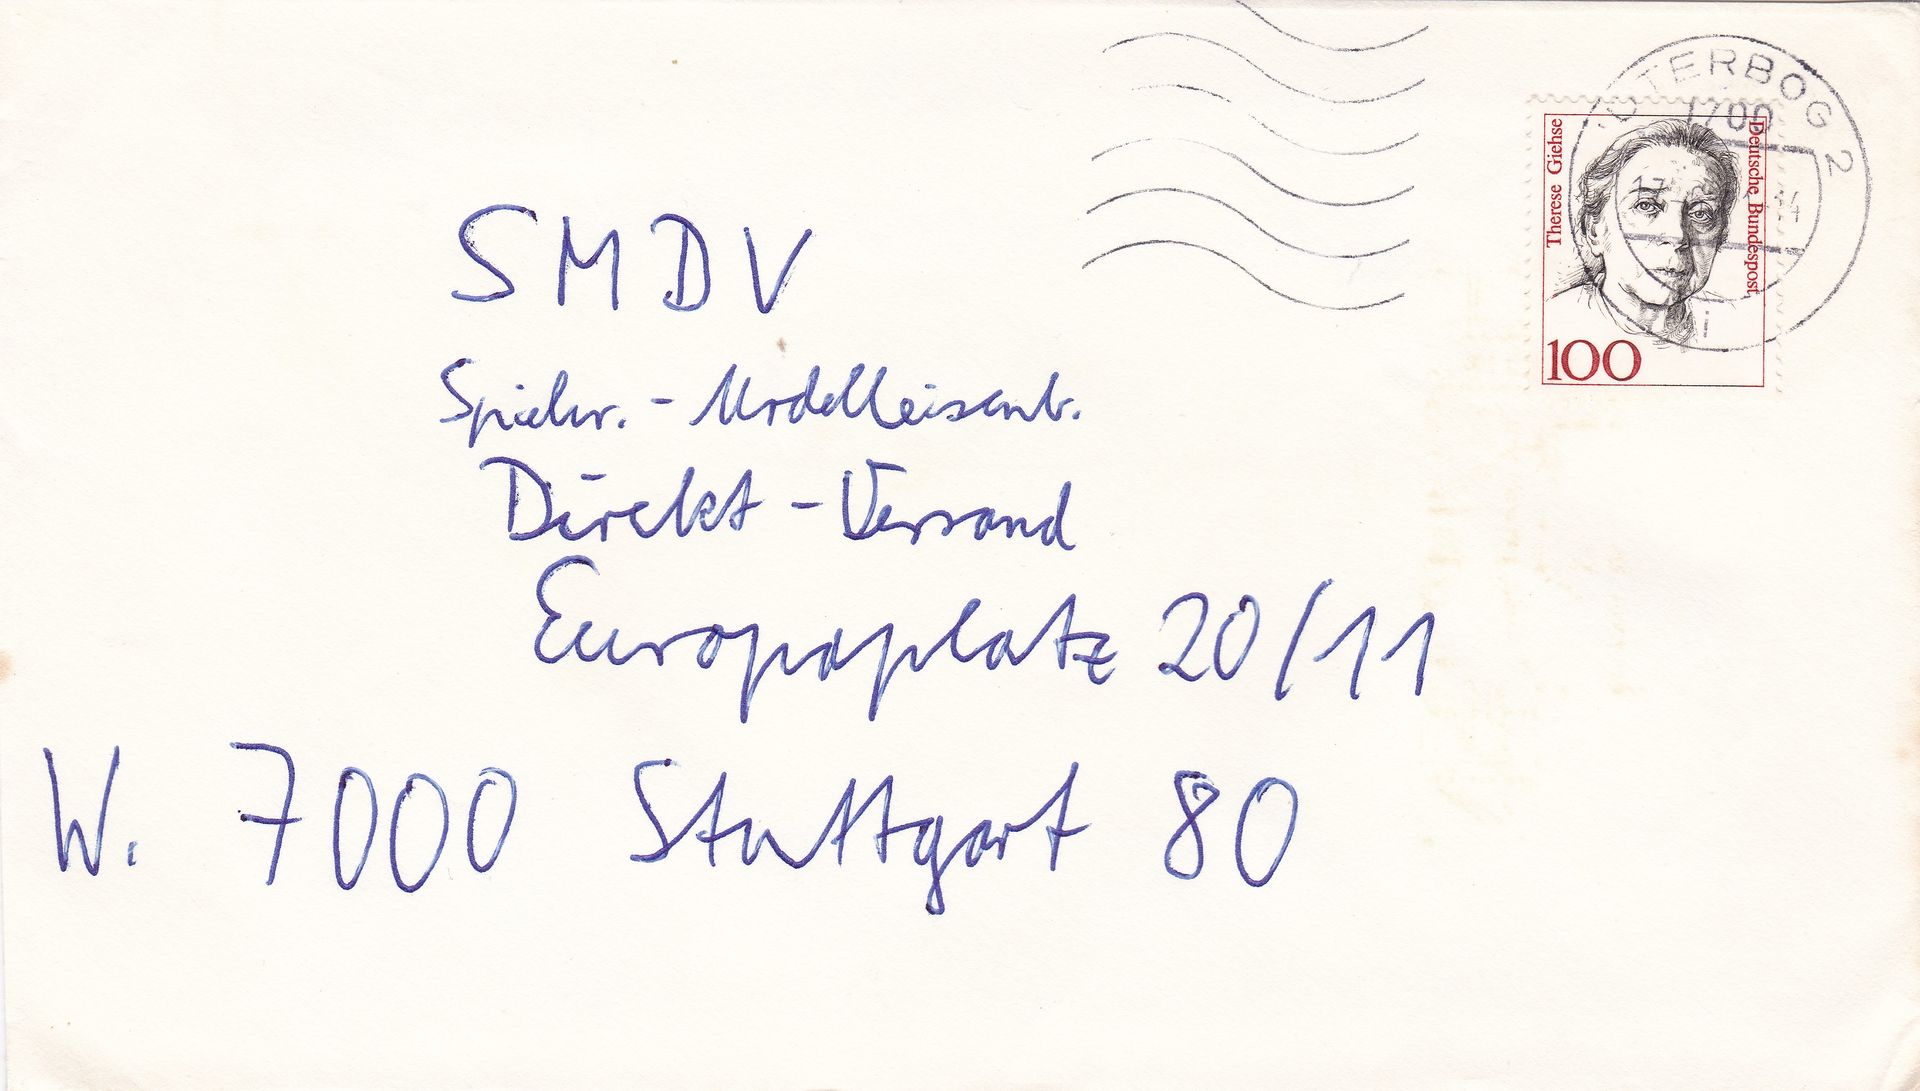 ÜTERBOG 2
1700
Therese Giehse
Deutsche Bundespost
100
SMDV
Spielw. - Modelleisenb.
Direkt - Versand
Europaplatz 20/11
W. 7000 Stuttgart 80